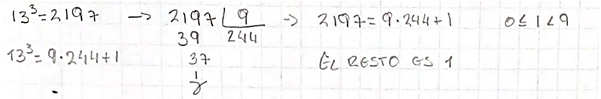 13³=2197 → 2197 | 9 → 2197=9·244+1 0≤1<9
39 244
13³=9·244+1 37 ÉL RESTO ES 1
1